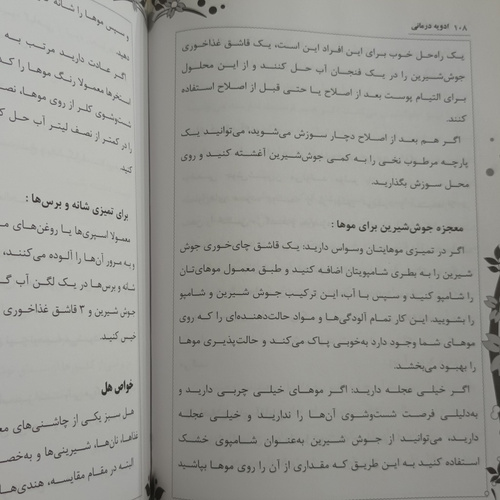 ۱۰۸ ادویه درمانی
یک راه‌حل خوب برای این افراد این است، یک قاشق غذاخوری
جوش‌شیرین را در یک فنجان آب حل کنند و از این محلول
برای التیام پوست بعد از اصلاح یا حتی قبل از اصلاح استفاده
کنند.
اگر هم بعد از اصلاح دچار سوزش می‌شوید، می‌توانید یک
پارچه مرطوب نخی را به کمی جوش‌شیرین آغشته کنید و روی
محل سوزش بگذارید.
معجزه جوش‌شیرین برای موها:
اگر در تمیزی موهایتان وسواس دارید: یک قاشق چای‌خوری جوش
شیرین را به بطری شامپویتان اضافه کنید و طبق معمول موهای‌تان
را شامپو کنید و سپس با آب، این ترکیب جوش شیرین و شامپو
را بشویید. این کار تمام آلودگی‌ها و مواد حالت‌دهنده‌ای را که روی
موهای شما وجود دارد به‌خوبی پاک می‌کند و حالت‌پذیری موها
را بهبود می‌بخشد.
اگر خیلی عجله دارید: اگر موهای خیلی چربی دارید و
به‌دلیلی فرصت شست‌وشوی آن‌ها را ندارید و خیلی عجله
دارید، می‌توانید از جوش شیرین به‌عنوان شامپوی خشک
استفاده کنید به این طریق که مقداری از آن را روی موها بپاشید
و سپس موها را شانه
دهید.
اگر عادت دارید مرتب به
استخرها معمولا رنگ موها را که
شست‌وشوی کلر از روی موها، نصف
را در کمتر از نصف لیتر آب حل ک
کنید.
برای تمیزی شانه و برس‌ها:
معمولا اسپری‌ها یا روغن‌های م
و به مرور آن‌ها را آلوده می‌کنند،
شانه و برس‌ها در یک لگن آب گ
جوش شیرین و ۳ قاشق غذاخوری
خیس کنید.
خواص هل
هل سبز یکی از چاشنی‌های مع
غذاها، نان‌ها، شیرینی‌ها و به‌خص
البته در مقام مقایسه، هندی‌ها